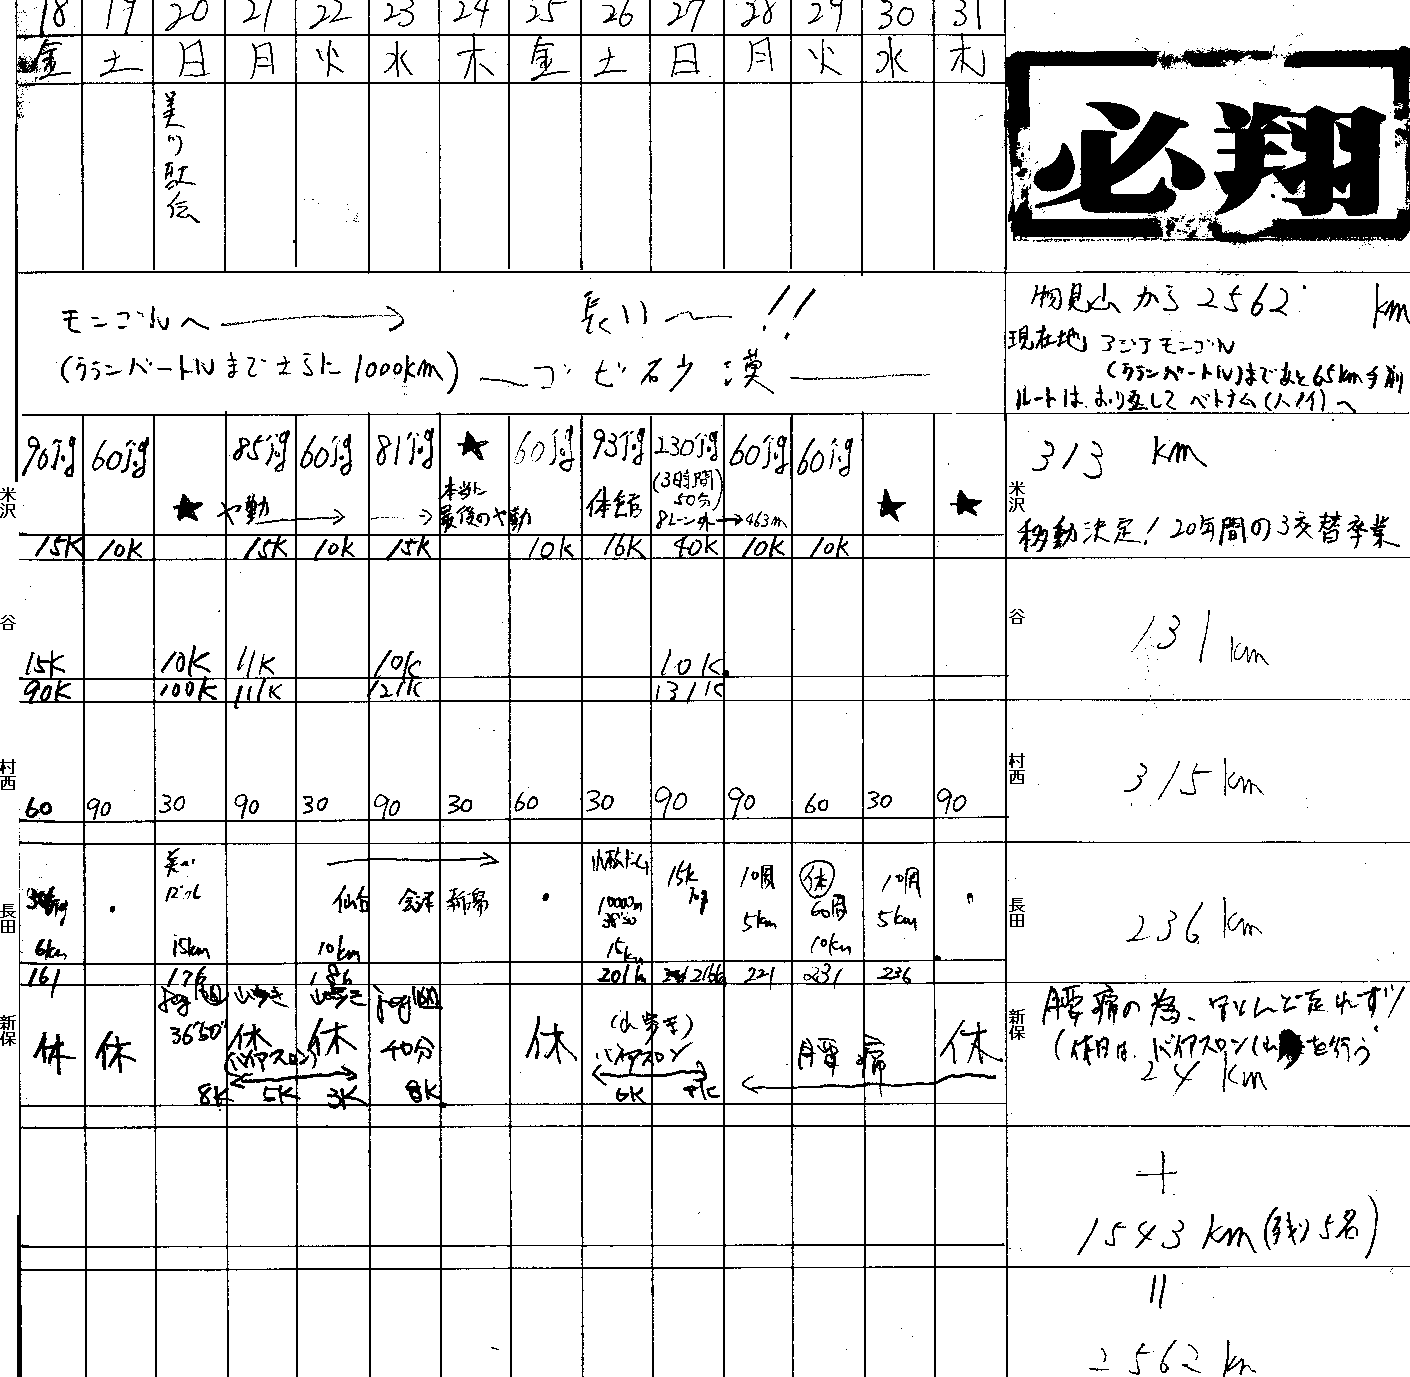 18 19 20 21 22 23 24 25 26 27 28 29 30 31
金 土 日 月 火 水 木 金 土 日 月 火 水 木
美川駅伝
必翔
モンゴルへ 長い〜!!
(ウランバートルまでさらに1000km) ゴビ砂漠
物見山から2562 km
現在地 アジア モンゴル
(ウランバートル)まであと65km手前
ルートはおり返して ベトナム(ハノイ)へ
米沢
90jog 60jog 85jog 60jog 81jog ★ 60jog 93jog 230jog 60jog 60jog
★ ヤ勤 本当に最後のヤ勤 体館 (3時間50分) 8レーン外→463m ★ ★
15K 10K 15K 10K 15K 10K 16K 40K 10K 10K
米沢
313 km
移動決定! 20年間の3交替卒業
谷
15K 10K 11K 10K 10K
90K 100K 111K 121K 131K
谷
131km
村西
60 90 30 90 30 90 30 60 30 90 90 60 30 90
村西
315km
長田
美川 15K 10周 休 10周
仙台 会津 新潟 10000m jog 5km 60周 5km
6km 15km 10km 15km 10km
161 176 186 201 216 221 231 236
長田
236 km
新保
jog 山歩き 山歩き jog
休 休 36'50" 休 休 40分 休 (山歩き) 腰痛 休
(バイアスロン) バイアスロン
8K 5K 3K 8K 6K
新保
腰痛の為、ほとんど走れず!!
(休日は バイアスロン(山)を行う
24 km
+
1543km(残り5名)
=
2562km